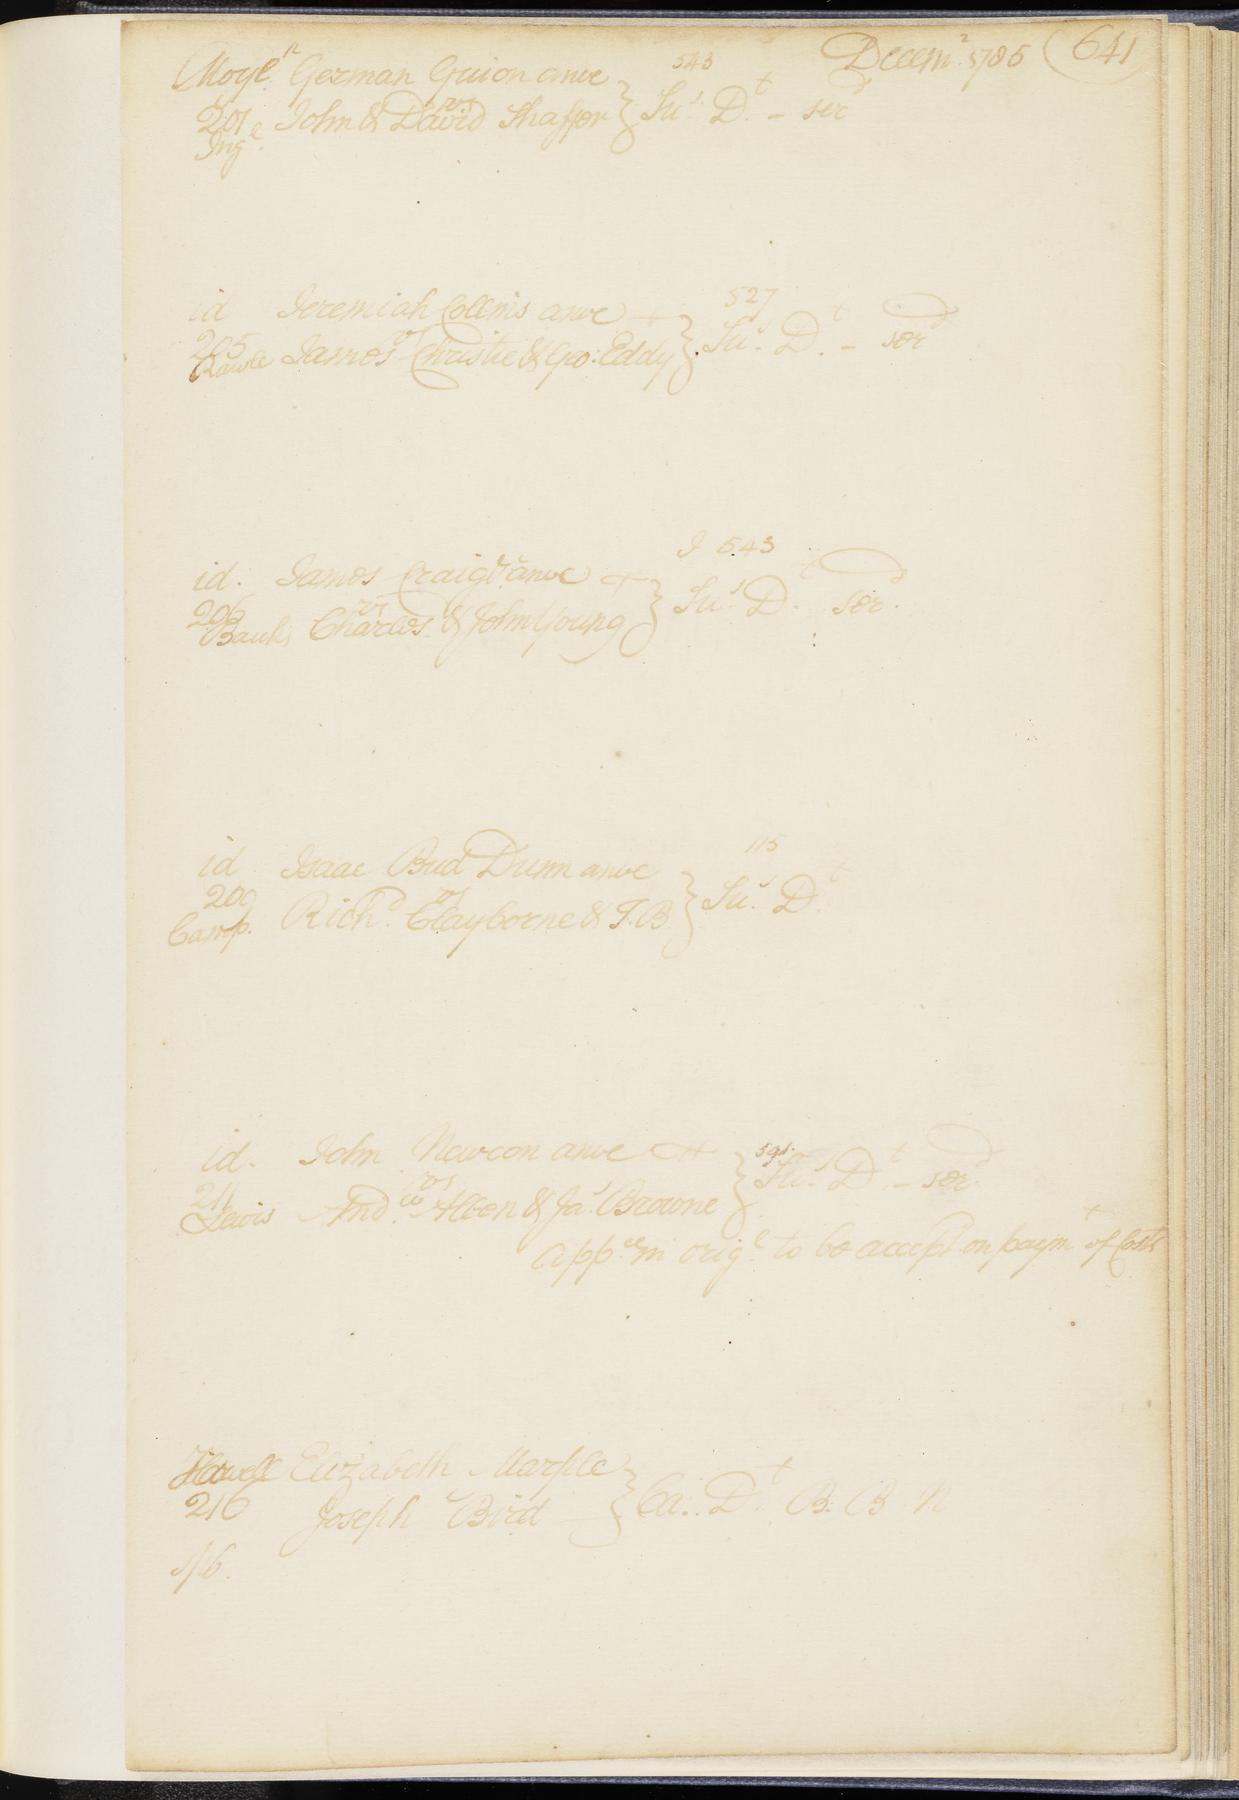 Decem.^r 1785 (641)
Moyl^n German Guion anve } 543
201 vs } Su^s. D^t. - ser^d
Ing^e. John & David Shaffer
id Jeremiah Collins anve } 527
205 vs } Su^s. D^t. - ser^d
Rawle James Christie & Geo: Eddy
id. James Craig J^r anve } 543
206 vs } Su^s. D^t. ser^d.
Bank. Charles & John Young
id Isaac Bud Dunn anve } 115
209 vs } Su^s. D^t.
Camp. Rich^d. Clayborne & T.B
id. John Newcon anve } 591.
211 vs } Su^s. D^t. - ser^d
Lewis And^w. Allen & Ja^s. Browne
app^ce in orig^l to be accep^t on paym^t of Costs
Howell Elizabeth Marple } Ca. D^t. B. B N
216 Joseph Bird
1/6.